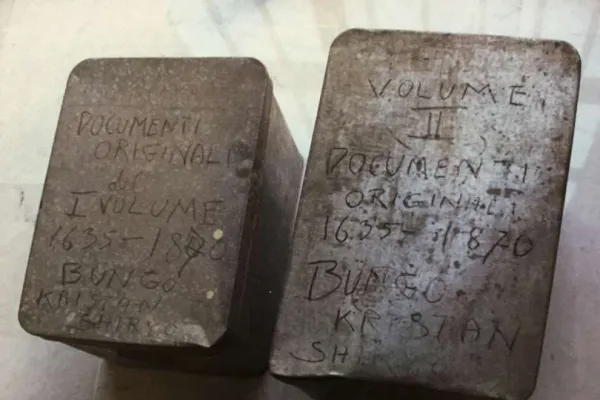 DOCUMENTI
ORIGINALI
del
I VOLUME
1635-1870
BUNGO
KRISTAN
SHIRYO
VOLUME
II
DOCUMENTI
ORIGINALI
1635-1870
BUNGO
KRISTAN